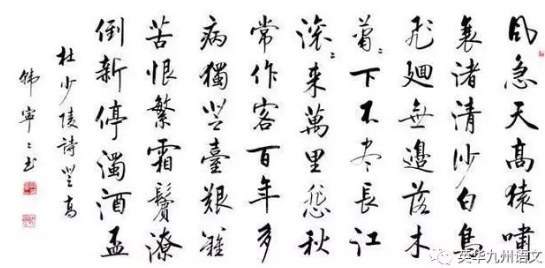 风急天高猿嘯
哀渚清沙白鳥
飛廻無邊落木
蕭〻下不尽長江
滚〻来萬里悲秋
常作客百年多
病獨登臺艱難
苦恨繁霜鬢潦
倒新停濁酒盃
杜少陵詩登高
韩寧〻书
英华九州语文